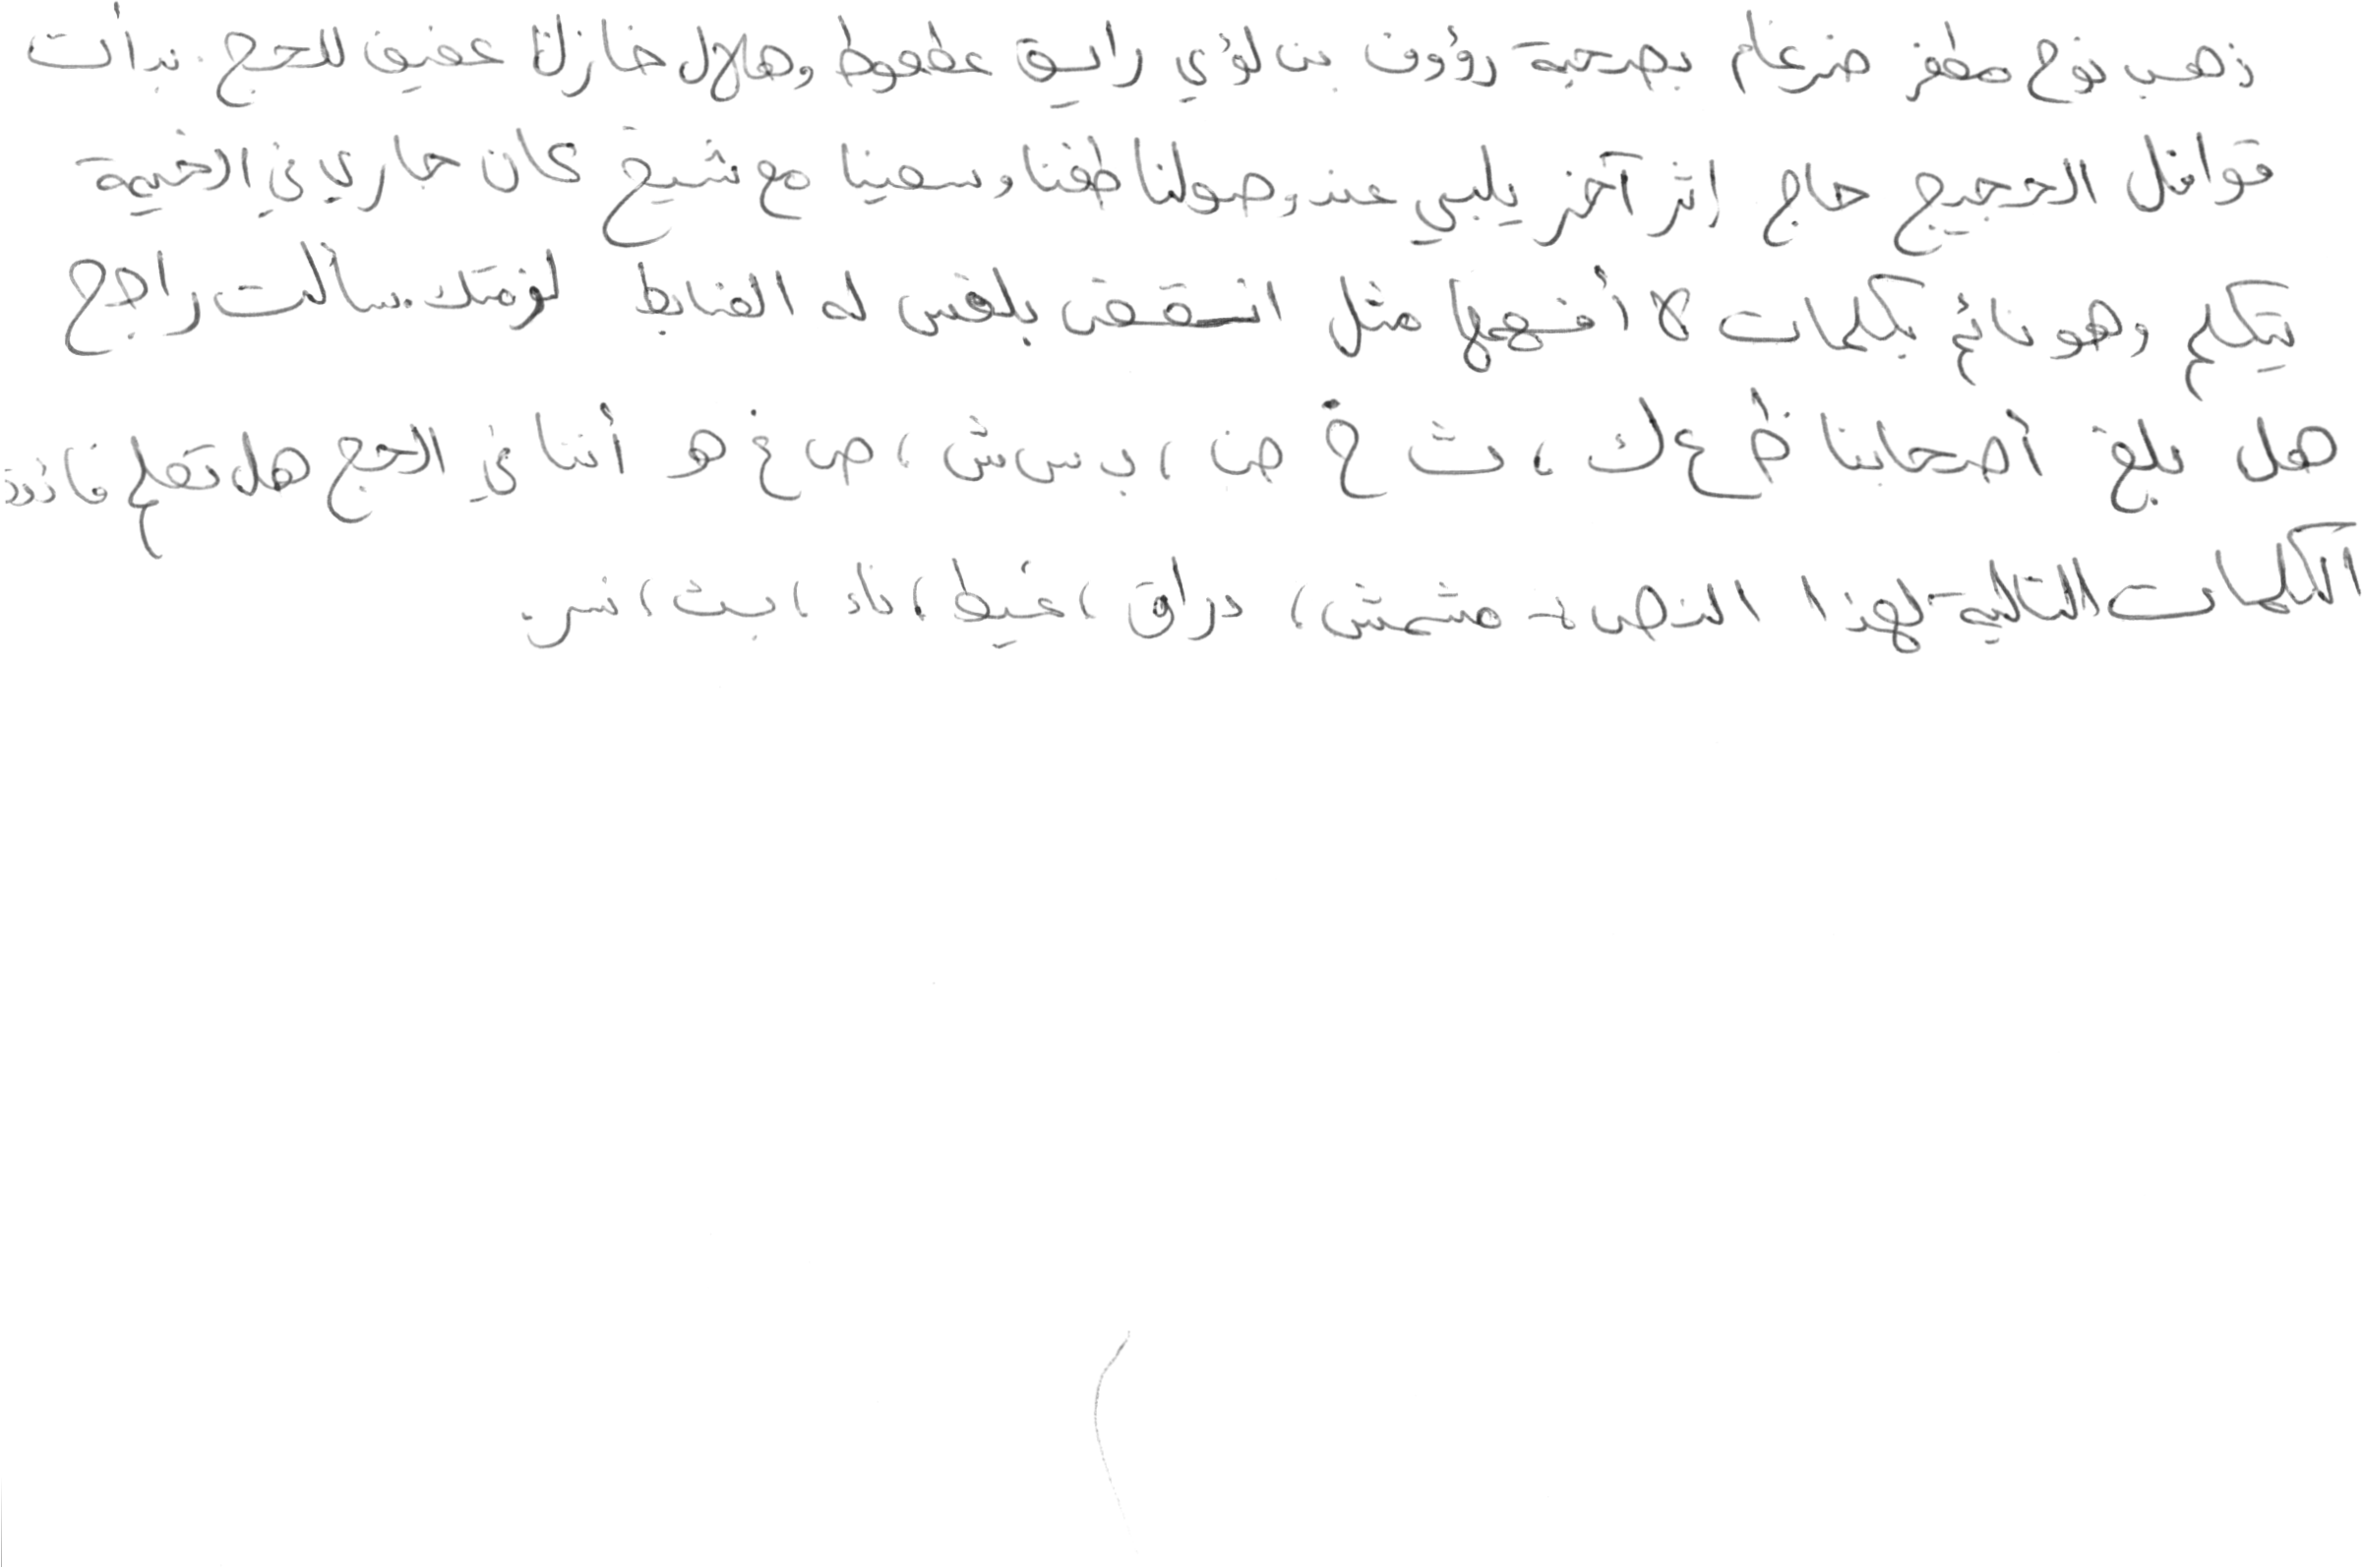 ذهب نوح مظفر ضرغام بصحبة رؤوف بن لؤي رايق عظعوط وهلال خازن عفيف للحج. بدأت
قوافل الحجيج حاج إثر آخر يلبي عند وصولنا طفنا وسعينا مع شيخ كان جاري في الخيمة
يتكلم وهو نائم بكلمات لا أفهمها مثل له الضابط سألت راجح
هل بلغ أصحابنا ع ك ، ث خ ض ، ب س ش ، ص غ هـ أننا في الحج هل
الكلمات التالية لهذا النص :- مشمش ، دراق ، غيظ ، ناد ، بث ، نسر.